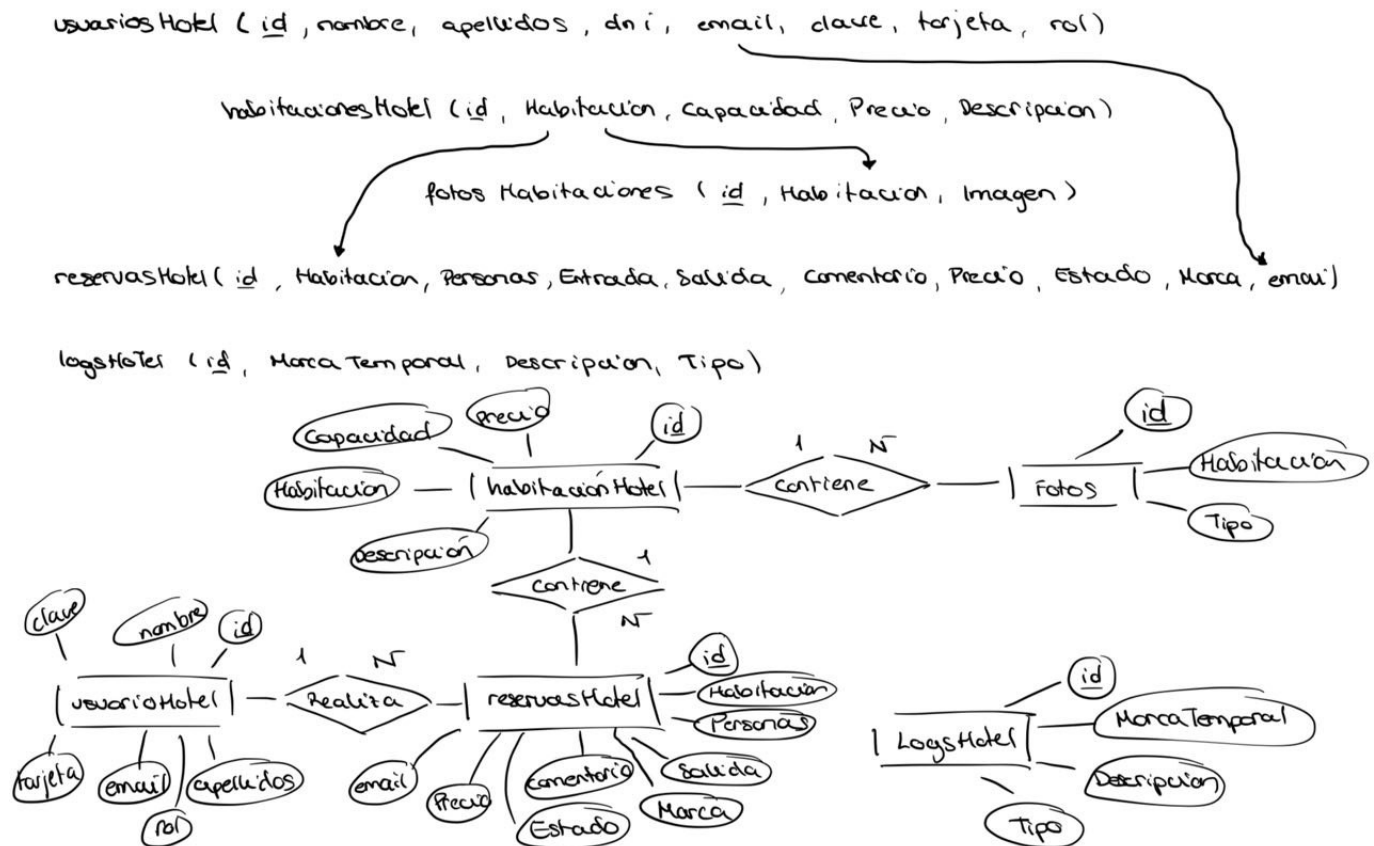 usuariosHotel ( id , nombre, apellidos , dni, email, clave, tarjeta, rol)
habitacionesHotel ( id , Habitacion, Capacidad, Precio, Descripcion )
fotos Habitaciones ( id , Habitacion, Imagen )
reservasHotel ( id , Habitacion, Personas, Entrada, Salida, Comentario, Precio, Estado, Marca, email)
logsHotel ( id, Marca Temporal, Descripcion, Tipo )
Capacidad
precio
id
Habitacion
habitaciónHotel
1 N
contiene
id
Fotos
Habitacion
Tipo
Descripción
1
contiene
N
clave
nombre
id
usuarioHotel
1 N
Realiza
reservasHotel
id
Habitacion
Personas
tarjeta
email
rol
apellidos
email
Precio
Estado
comentario
Salida
Marca
id
LogsHotel
MarcaTemporal
Descripcion
Tipo